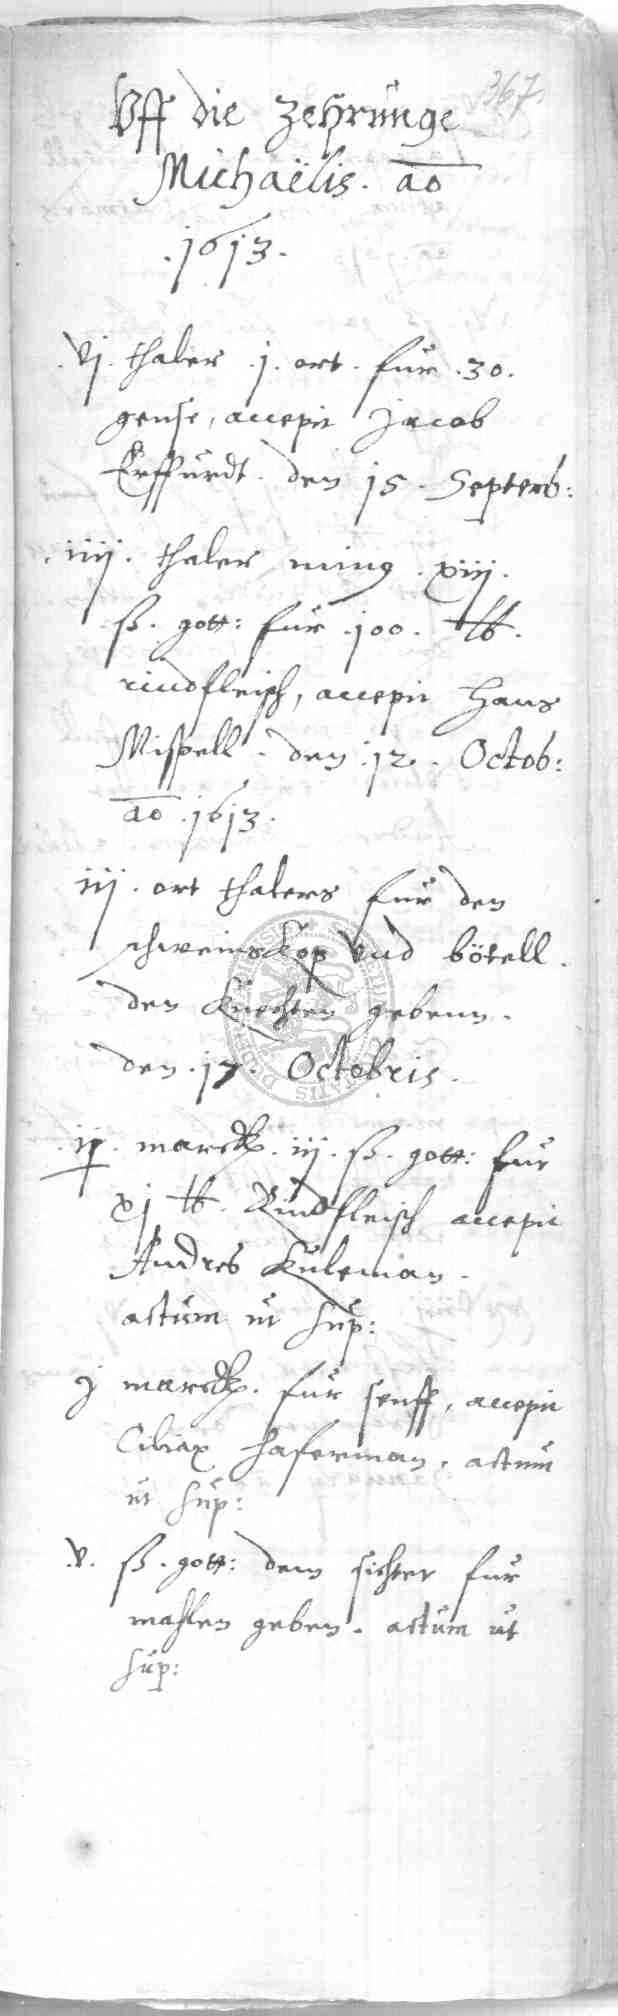 367.
Vff die zehrunge
Michaëlis. ao
.1613.
.vj. thaler .j. ort. für .30.
gense, accepit Jacob
Erffurdt. den 15. Septemb:
.iiij. thaler ming .xiij.
ß. gott: für .100. ℔.
rindfleisch, accepit Hans
Mispell. den .12. Octob:
ao .1613.
iij. ort thalers für den
schweinskop vnd bötell.
den Knechten gebenn.
den .17. Octobris.
.ij. marck. iij. ß. gott: für
xj ℔. Rindfleisch accepit
Andres Kuleman.
actum ut sup:
j marck. für senff, accepit
Ciliax Haferman, actum
ut sup:
.v. ß. gott: dem sichter für
mahlen geben. actum ut
sup: